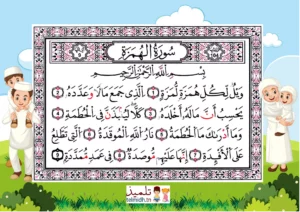 سُورَةُ الهُمَزَةِ
بِسْمِ اللَّهِ الرَّحْمَٰنِ الرَّحِيمِ
وَيْلٌ لِّكُلِّ هُمَزَةٍ لُّمَزَةٍ ۝ الَّذِي جَمَعَ مَالًا وَعَدَّدَهُ ۝
يَحْسَبُ أَنَّ مَالَهُ أَخْلَدَهُ ۝ كَلَّا لَيُنبَذَنَّ فِي الْحُطَمَةِ ۝
وَمَا أَدْرَىٰكَ مَا الْحُطَمَةُ ۝ نَارُ اللَّهِ الْمُوقَدَةُ ۝ الَّتِي تَطَّلِعُ
عَلَى الْأَفْـِٔدَةِ ۝ إِنَّهَا عَلَيْهِم مُّوصَدَةٌ ۝ فِي عَمَدٍ مُّمَدَّدَةٍ ۝
تلميذ
telmidh.tn